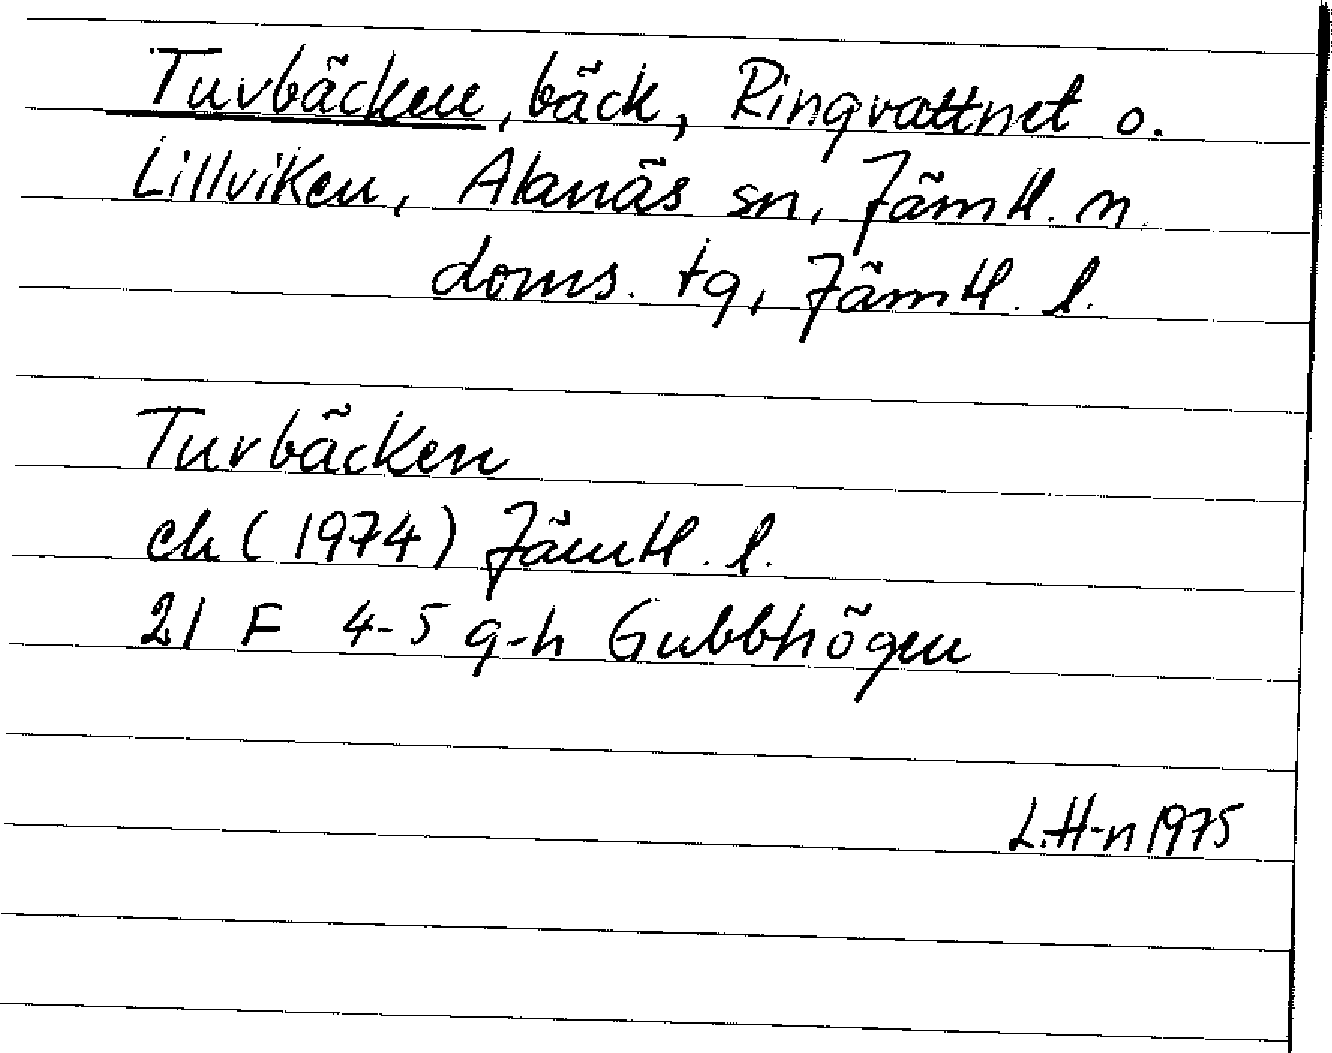 Tuvbäcken, bäck, Ringvattnet o.
Lillviken, Alanäs sn, Jämtl. n.
doms. tg, Jämtl. l.
Tuvbäcken
ek (1974) Jämtl. l.
21 F 4-5 g-h Gubbhögen
L.H-n 1975